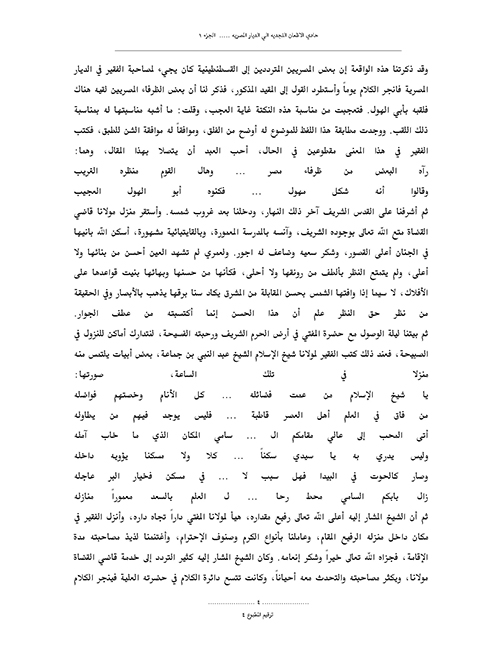 حادي الأظعان النجدية الي الديار المصرية ..... الجزء ١
وقد ذكرتنا هذه الواقعة إن بعض المصريين المترددين إلى القسطنطينية كان يجيء لمصاحبة الفقير في الديار
المصرية فانجر الكلام يوماً وأستطرد القول إلى المقيد المذكور، فذكر لنا أن بعض الظرفاء المصريين لقبه هناك
فلقبه بأبي الهول. فتعجبت من مناسبة هذه النكتة غاية العجب، وقلت: ما أشبه مناسبتها له بمناسبة
ذلك اللقب. ووجدت مطابقة هذا اللفظ للموضوع له أوضح من الفلق، وموافقاً له موافقة الشن للطبق، فكتب
الفقير في هذا المعنى مقطوعين في الحال، أحب العبد أن يتصلا بهذا المقال، وهما:
رآه البعض من ظرفاء مصر ... وهال القوم منظره الغريب
وقالوا أنه شكل مهول ... فكنوه أبو الهول العجيب
ثم أشرفنا على القدس الشريف آخر ذلك النهار، ودخلنا بعد غروب شمسه. وأستقر منزل مولانا قاضي
القضاة متع الله تعالى بوجوده الشريف، وآنسه بالمدرسة المعمورة، وبالقايتبائية مشهورة، أسكن الله بانيها
في الجنان أعلى القصور، وشكر سعيه وضاعف له اجور. ولعمري لم تشهد العين أحسن من بنائها ولا
أعلى، ولم يتمتع النظر بألطف من رونقها ولا أحلى، فكأنها من حسنها وبهائها بنيت قواعدها على
الأفلاك، لا سيما إذا واقتها الشمس بحسن المقابلة من المشرق يكاد سنا برقها يذهب بالأبصار وفي الحقيقة
من نظر حق النظر علم أن هذا الحسن إنما أكتسبته من عطف الجوار.
ثم بيتنا ليلة الوصول مع حضرة المفتي في أرض الحرم الشريف ورحبته الفسيحة، لنتدارك أماكن للنزول في
الصبيحة، فعند ذلك كتب الفقير لمولانا شيخ الإسلام الشيخ عبد النبي بن جماعة، بعض أبيات يلتمس منه
منزلا في تلك الساعة، صورتها:
يا شيخ الإسلام من عمت فضائله ... كل الأنام وخصتهم فواضله
من فاق في العلم أهل العصر قاطبة ... فليس يوجد فيهم من يطاوله
أتى المحب إلى عالي مقامكم ال ... سامي المكان الذي ما خاب آمله
وليس يدري به يا سيدي سكناً ... كلا ولا مسكنا يؤويه داخله
وصار كالحوت في البيدا فهل سبب لا ... في مسكن فخيار البر عاجله
زال بابكم السامي محط رحا ... ل العلم بالسعد معموراً منازله
ثم أن الشيخ المشار إليه أعلى الله تعالى رفيع مقداره، هيأ لمولانا المفتي داراً تجاه داره، وأنزل الفقير في
مكان داخل منزله الرفيع المقام، وعاملنا بأنواع الكرم وصنوف الإحترام، وأغتنمنا لذيذ مصاحبته مدة
الإقامة، فجزاه الله تعالى خيراً وشكر إنعامه. وكان الشيخ المشار إليه كثير التردد إلى خدمة قاضي القضاة
مولانا، ويكثر مصاحبته والتحدث معه أحياناً، وكانت تتسع دائرة الكلام في حضرته العلية فينجر الكلام
...................... ٤ ......................
ترقيم المطبوع ٤